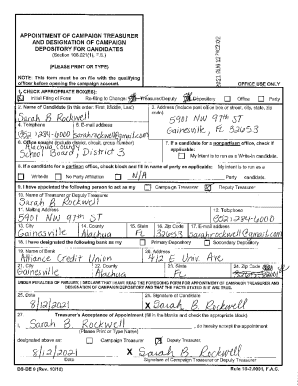 APPOINTMENT OF CAMPAIGN TREASURER
AND DESIGNATION OF CAMPAIGN
DEPOSITORY FOR CANDIDATES
(Section 106.021(1), F.S.)
(PLEASE PRINT OR TYPE)
NOTE: This form must be on file with the qualifying
officer before opening the campaign account.
OFFICE USE ONLY
1. CHECK APPROPRIATE BOX(ES):
Initial Filing of Form Re-filing to Change: Treasurer/Deputy Depository Office Party
2. Name of Candidate (in this order: First, Middle, Last)
Sarah B Rockwell
3. Address (include post office box or street, city, state, zip
code)
5901 NW 97th ST
Gainesville, FL 32653
4. Telephone
5. E-mail address
(352) 284-6000 sarahrockwell@gmail.com
6. Office sought (include district, circuit, group number)
Alachua County
School Board, District 3
7. If a candidate for a nonpartisan office, check if
applicable:
My intent is to run as a Write-In candidate.
8. If a candidate for a partisan office, check block and fill in name of party as applicable: My intent is to run as a
Write-In No Party Affiliation N/A Party candidate.
9. I have appointed the following person to act as my Campaign Treasurer Deputy Treasurer
10. Name of Treasurer or Deputy Treasurer
Sarah B Rockwell
11. Mailing Address
5901 NW 97th ST
12. Telephone
(352) 284-6000
13. City
Gainesville
14. County
Alachua
15. State
FL
16. Zip Code
32653
17. E-mail address
sarahrockwell@gmail.com
18. I have designated the following bank as my Primary Depository Secondary Depository
19. Name of Bank
Alliance Credit Union
20. Address
412 E Univ. Ave
21. City
Gainesville
22. County
Alachua
23. State
FL
24. Zip Code
UNDER PENALTIES OF PERJURY, I DECLARE THAT I HAVE READ THE FOREGOING FORM FOR APPOINTMENT OF CAMPAIGN TREASURER AND
DESIGNATION OF CAMPAIGN DEPOSITORY AND THAT THE FACTS STATED IN IT ARE TRUE.
25. Date
8/12/2021
26. Signature of Candidate
X Sarah B Rockwell
27. Treasurer's Acceptance of Appointment (fill in the blanks and check the appropriate block)
I, Sarah B. Rockwell, do hereby accept the appointment
(Please Print or Type Name)
designated above as: Campaign Treasurer Deputy Treasurer.
8/12/2021
X Sarah B Rockwell
Date
Signature of Campaign Treasurer or Deputy Treasurer
DS-DE 9 (Rev. 10/10)
Rule 1S-2.0001, F.A.C.